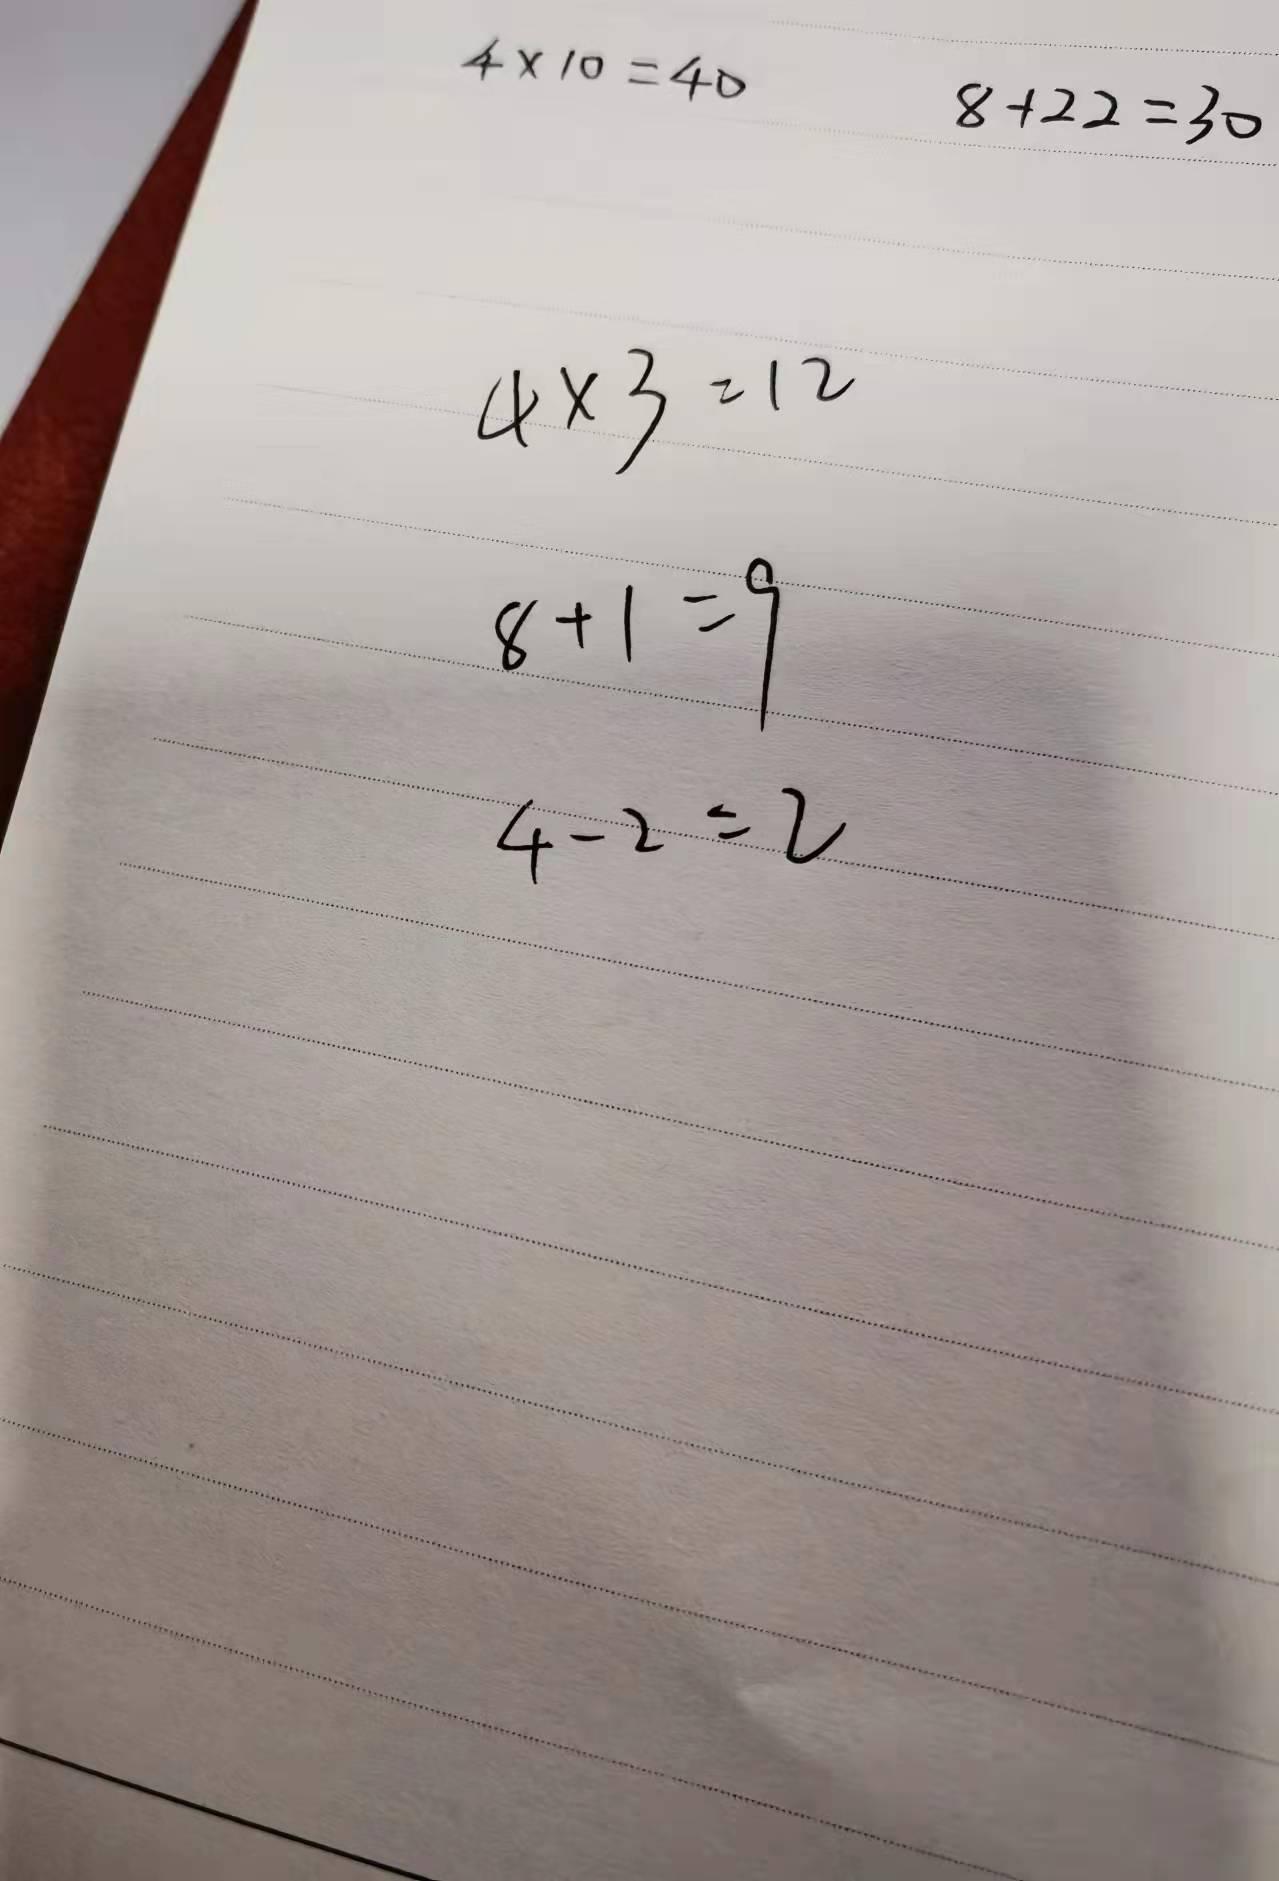 4×10=40
8+22=30
4×3=12
8+1=9
4-2=2